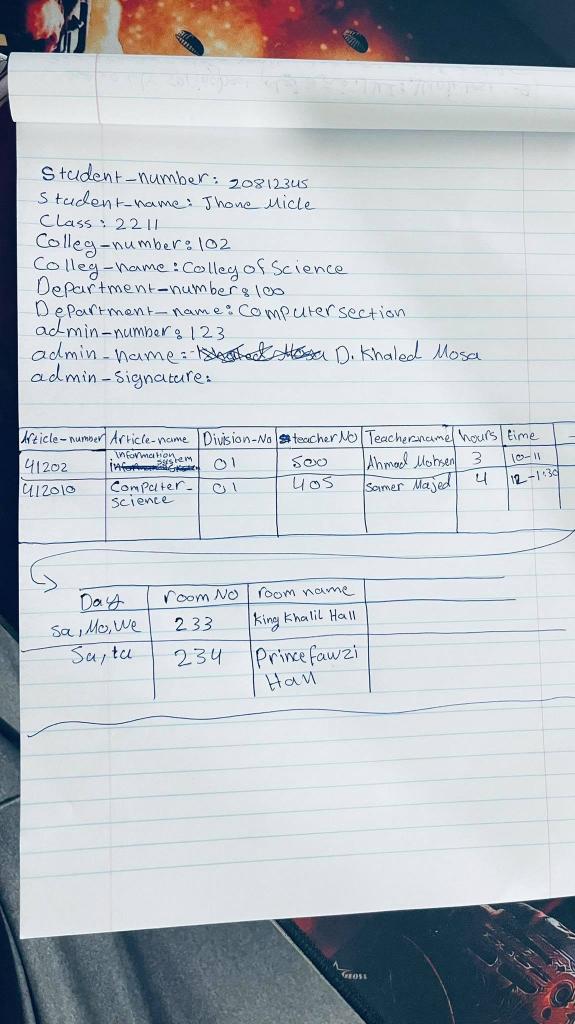 Student-number: 20812345
Student-name: Jhone Micle
Class: 2211
Colleg-number: 102
Colleg-name: Colleg of Science
Department-number: 100
Department-name: Computer section
admin-number: 123
admin-name: D. Khaled Mosa
admin-signature:
Article-number Article-name Division-No teacher NO Teachername hours time
41202 Information system 01 500 Ahmad Mohsen 3 10-11
412010 Computer-science 01 405 Samer Majed 4 12-1:30
Day room NO room name
Sa, Mo, We 233 King Khalil Hall
Su, tu 234 Prince fawzi
Hall